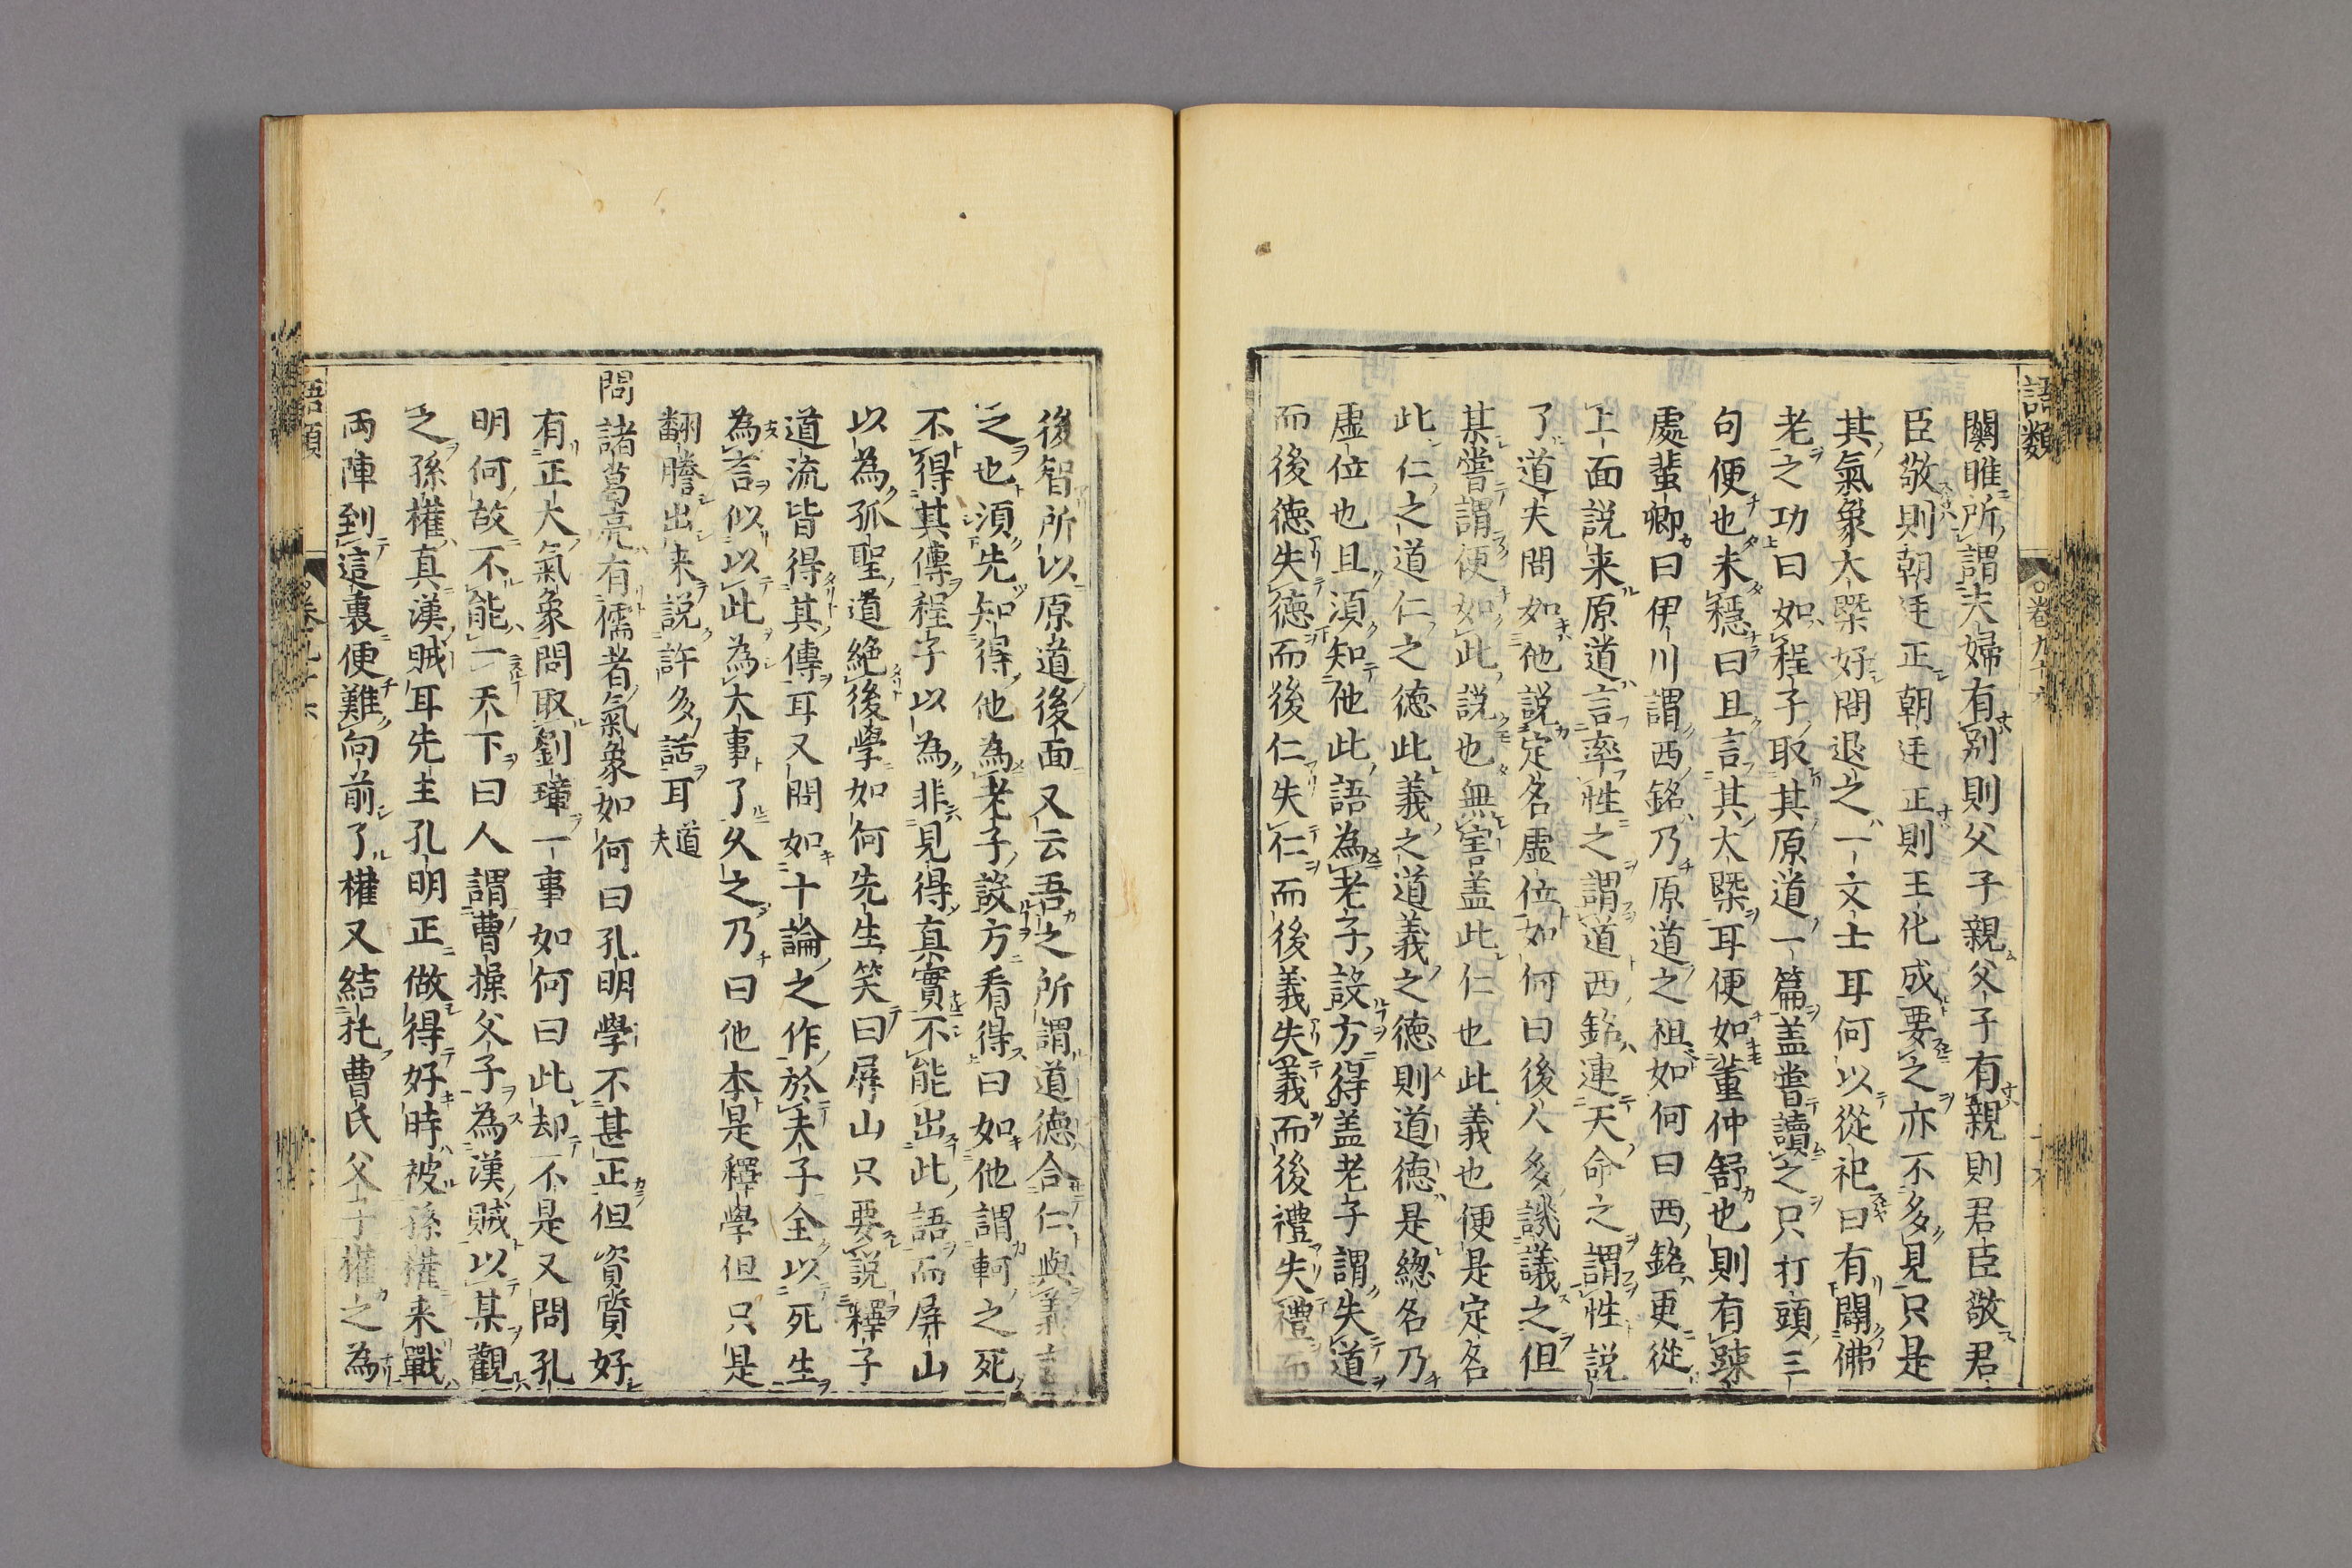 語類
卷九十六
關雎所謂夫婦有別則父子親父子有親則君臣敬君
臣敬則朝廷正朝廷正則王化成要之亦不多見只是
其氣象大槩好問退之一文士耳何以從祀曰有闢佛
老之功曰如程子取其原道一篇盖嘗讀之只打頭三
句便也未穩曰且言其大槩耳便如董仲舒也則有踈
處蜚卿曰伊川謂西銘乃原道之祖如何曰西銘更從
上面説来原道言率性之謂道西銘連天命之謂性説
了道夫問如他説定名虛位如何曰後人多譏議之但
某嘗謂便如此説也無害盖此仁也此義也便是定名
此仁之道仁之徳此義之道義之徳則道徳是緫名乃
虛位也且湏知他此語為老子設方得盖老子謂失道
而後徳失徳而後仁失仁而後義失義而後禮失禮而
後智所以原道後面又云吾之所謂道徳合仁與義言
之也湏先知得他為老子設方看得曰如他謂軻之死
不得其傳程子以為非見得真實不能出此語而屏山
以為孤聖道絶後學如何先生笑曰屏山只要説釋子
道流皆得其傳耳又問如十論之作於夫子全以死生
為言似以此為大事了久之乃曰他本是釋學但只是
翻謄出来説許多話耳道夫
問諸葛亮有儒者氣象如何曰孔明學不甚正但資質好
有正大氣象問取劉璋一事如何曰此却不是又問孔
明何故不能一天下曰人謂曹操父子為漢賊以某觀
之孫權真漢賊耳先主孔明正做得好時被孫權来戰
兩陣到這裏便難向前了權又結托曹氏父子權之為
語類